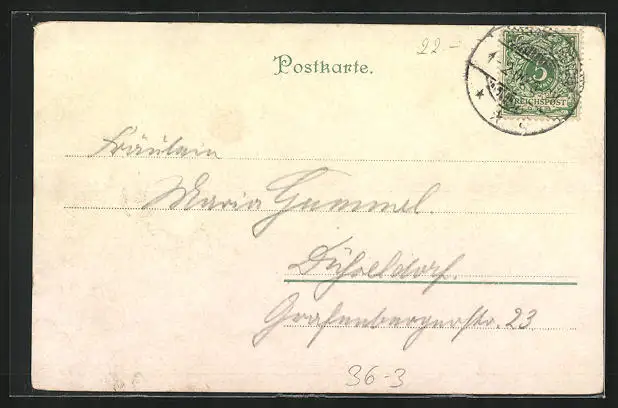 22-
Postkarte.
5
REICHSPOST
Fräulein
Maria Gummel.
Düsseldorf.
Grafenbergerstr. 23
36-3